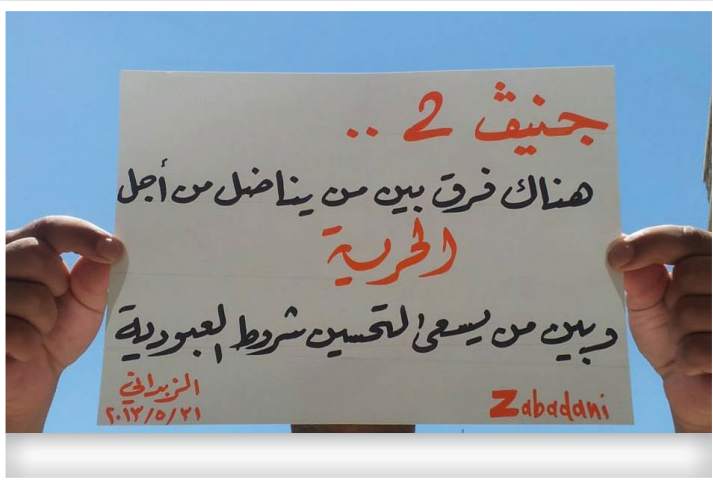 جنيڤ 2 ..
هناك فرق بين من يناضل من أجل
الحرية
وبين من يسعى لتحسين شروط العبودية
الزبداني
٢٠١٣/٥/٢١
Zabadani